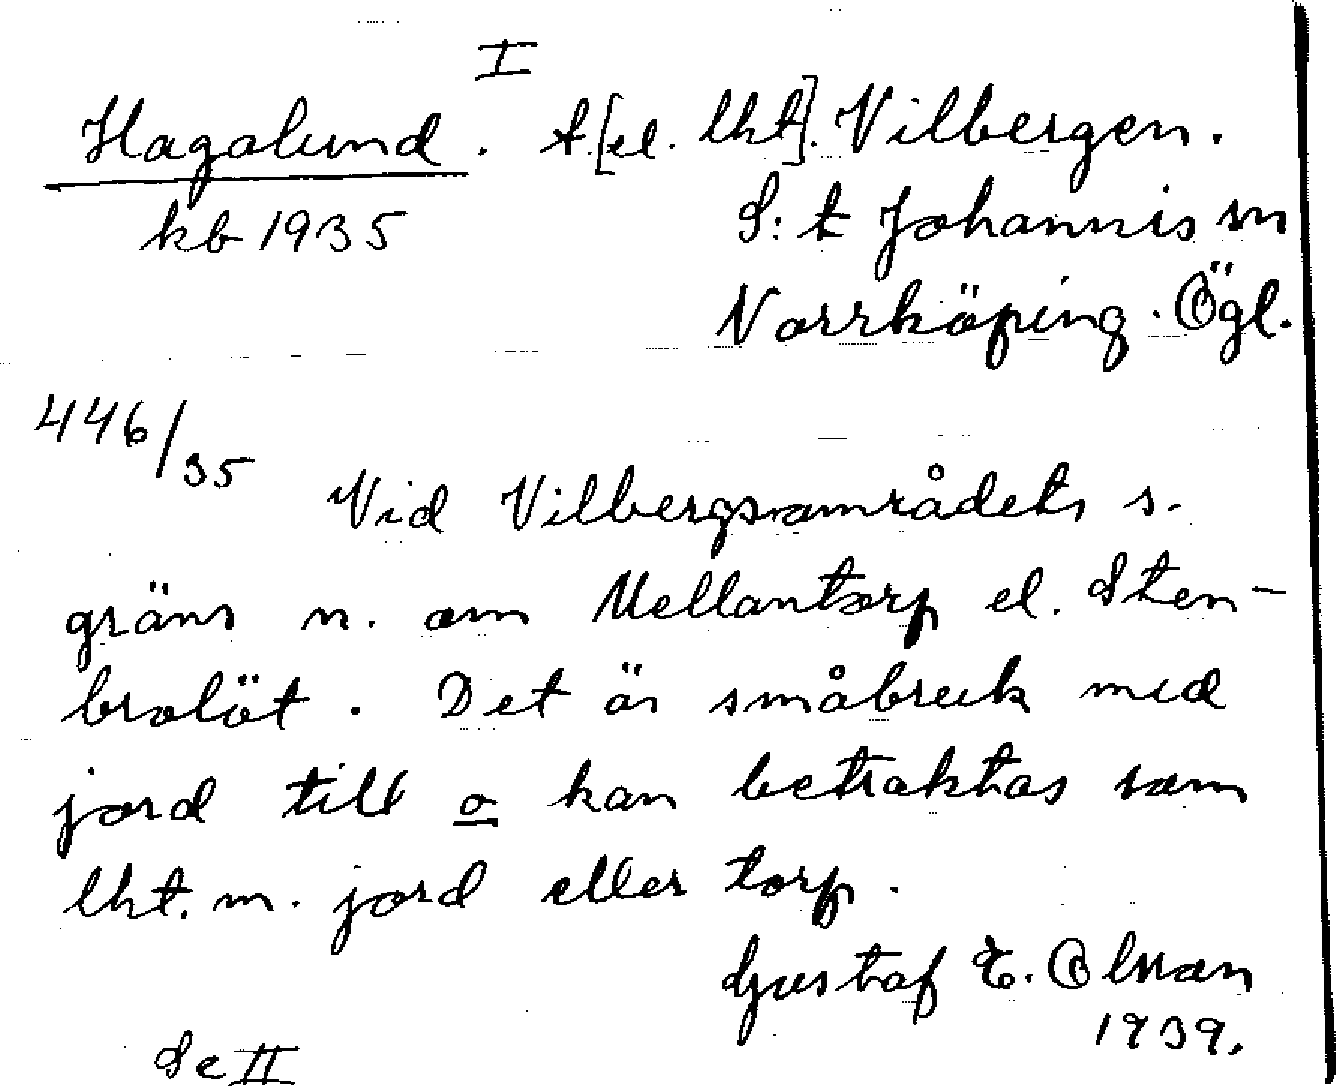 I
Hagalund. t.[el. lht]. Vilbergen.
kb 1935
S:t Johannis sn
Norrköping. Ögl.
446/35
Vid Vilbergsområdets s.
gräns n. om Mellantorp el. Sten-
brolöt. Det är småbruk med
jord till o kan betraktas som
lht. m. jord eller torp.
Gustaf E. Olsson
1939.
Se II